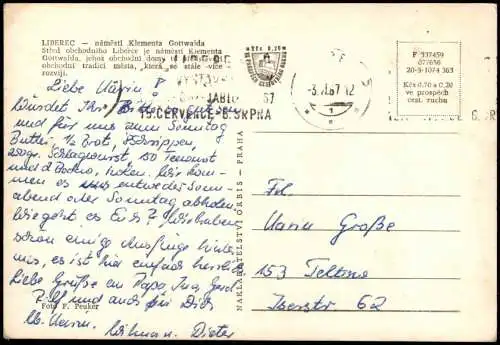 LIBEREC — náměstí Klementa Gottwalda
Střed obchodního Liberce je náměstí Klementa
Gottwalda, jehož obchodní domy
obchodní tradici města, která se stále více
rozvíjí.
Liebe Maria!
Würdest Ihr bitte
und für uns zum Sonntag
Butter, 1/2 Brot, Schrippen,
250gr. Schlagwurst, 50 Teewurst
und 2 Bockw. holen. Wir kom-
men es entweder Sonn-
abend oder Sonntag abholen.
Wie geht es Euch? Wir haben
schon einige Ausflüge hinter
uns, es ist hier einfach herrlich.
Liebe Grüße an Papa,
und auch für Dich
Dieter
Foto F. Peuker
NAKLADATELSTVÍ ORBIS - PRAHA
Kčs 0,20
JABLO 67
15. ČERVENCE - 6. SRPNA
-3.
67 12
F 337459
077656
20-8-1074 363
Kčs 0,70 + 0,20
ve prospěch
cest. ruchu
Frl.
Maria Große
153 Teltow
Iserstr 62